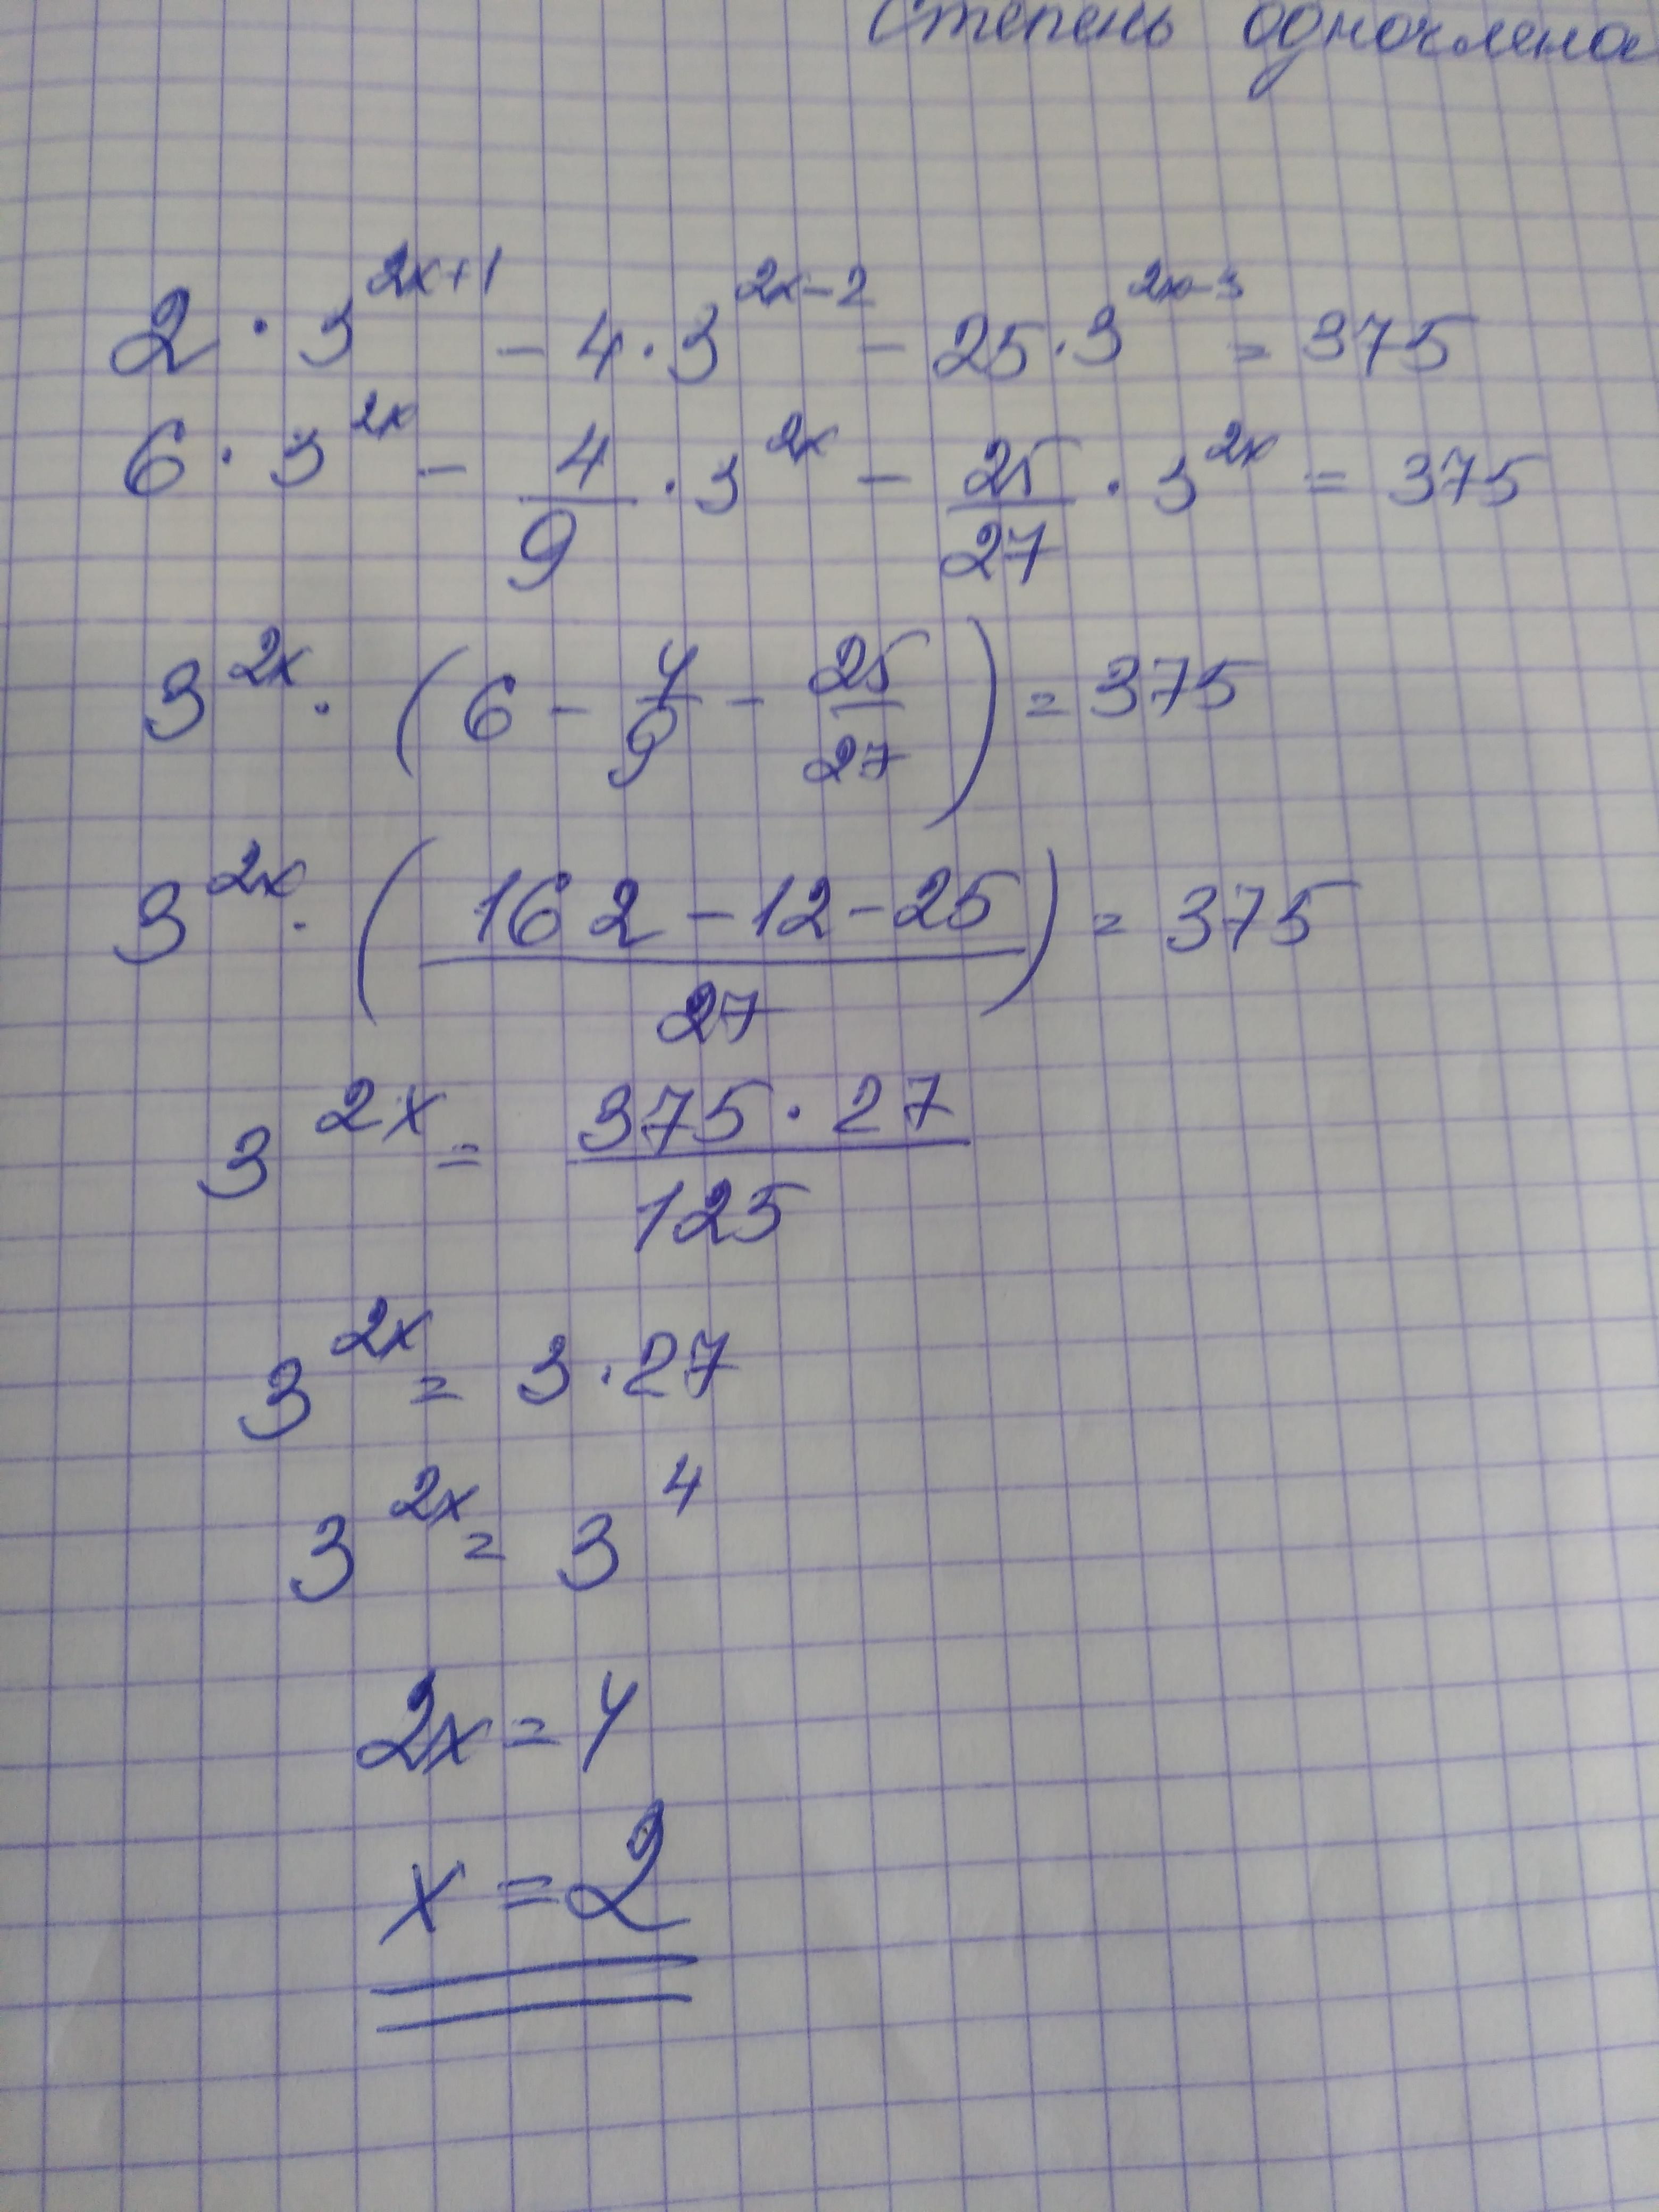 Степень одночлена
2 · 3^{2x+1} - 4 · 3^{2x-2} - 25 · 3^{2x-3} = 375
6 · 3^{2x} - \frac{4}{9} · 3^{2x} - \frac{25}{27} · 3^{2x} = 375
3^{2x} · (6 - \frac{4}{9} - \frac{25}{27}) = 375
3^{2x} · (\frac{162 - 12 - 25}{27}) = 375
3^{2x} = \frac{375 · 27}{125}
3^{2x} = 3 · 27
3^{2x} = 3^{4}
2x = 4
x = 2